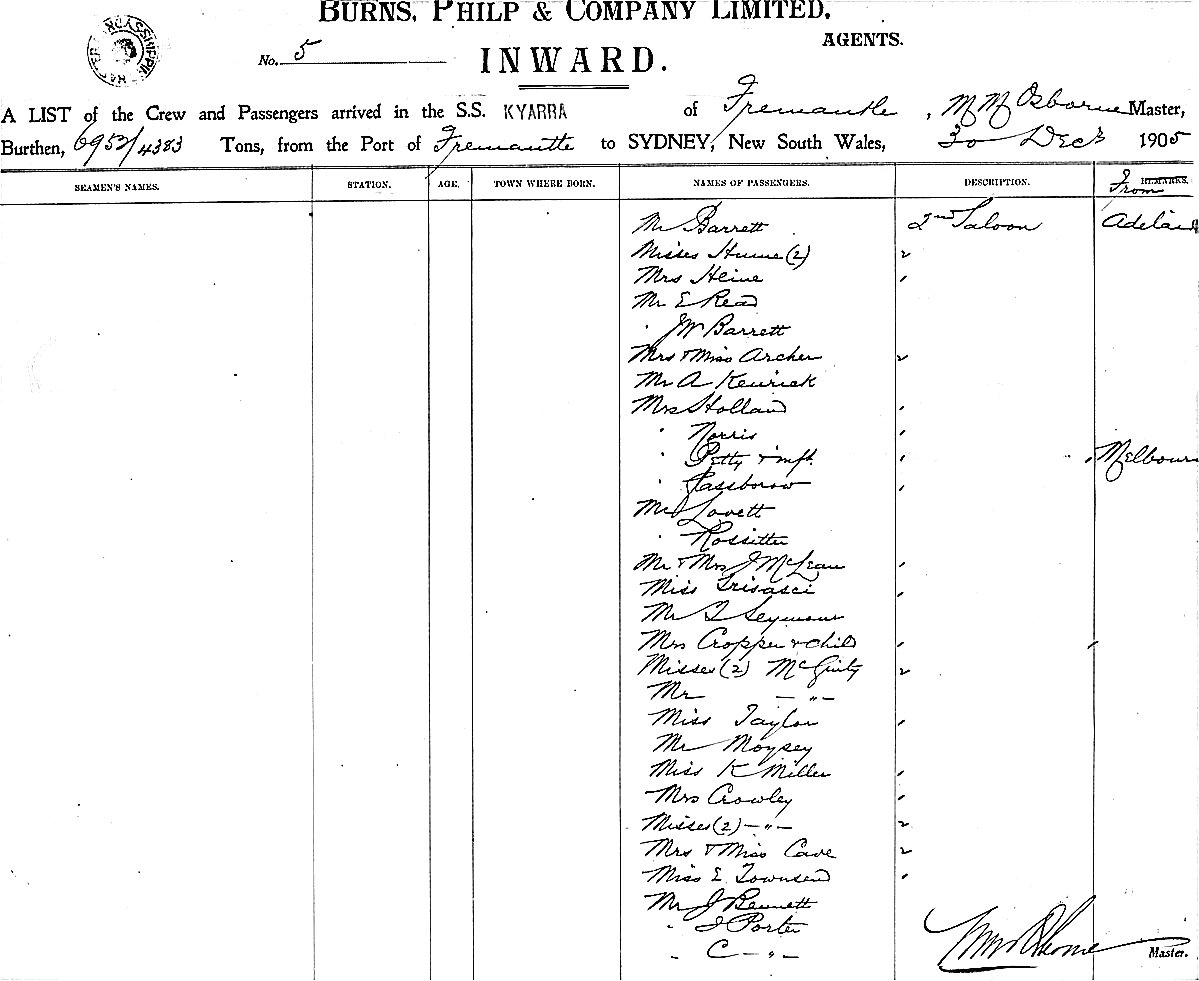 BURNS, PHILP & COMPANY LIMITED,
AGENTS.
No. 5
INWARD.
A LIST of the Crew and Passengers arrived in the S.S. KYARRA of Fremantle, Osborne Master,
Burthen, 6953/4383 Tons, from the Port of Fremantle to SYDNEY, New South Wales, 30 Decr 1905
SEAMEN'S NAMES. STATION. AGE. TOWN WHERE BORN. NAMES OF PASSENGERS. DESCRIPTION. From REMARKS.
Mr Barrett 2nd Saloon Adelaid
Misses Hume (2) 2
Mrs Heine '
Mr E Read
" Barrett
Mrs & Miss Archer 2
Mr A Kenrick
Mrs Holland '
" Norris '
" Petty & inft. ' Melbourn
" Glassborow '
Mr Lovett
" Rossitter
Mr & Mrs J McLean '
Miss '
Mr Seymour
Mrs Cropper & child '
Misses (2) McGinty 2
Mr — " —
Miss Taylor '
Mr Moysey
Miss K Miller '
Mrs Crowley '
Misses (2) — " — 2
Mrs & Miss Cave 2
Miss E Townsend '
Mr J Bennett
" Porter
" C — " —
Osborne Master.